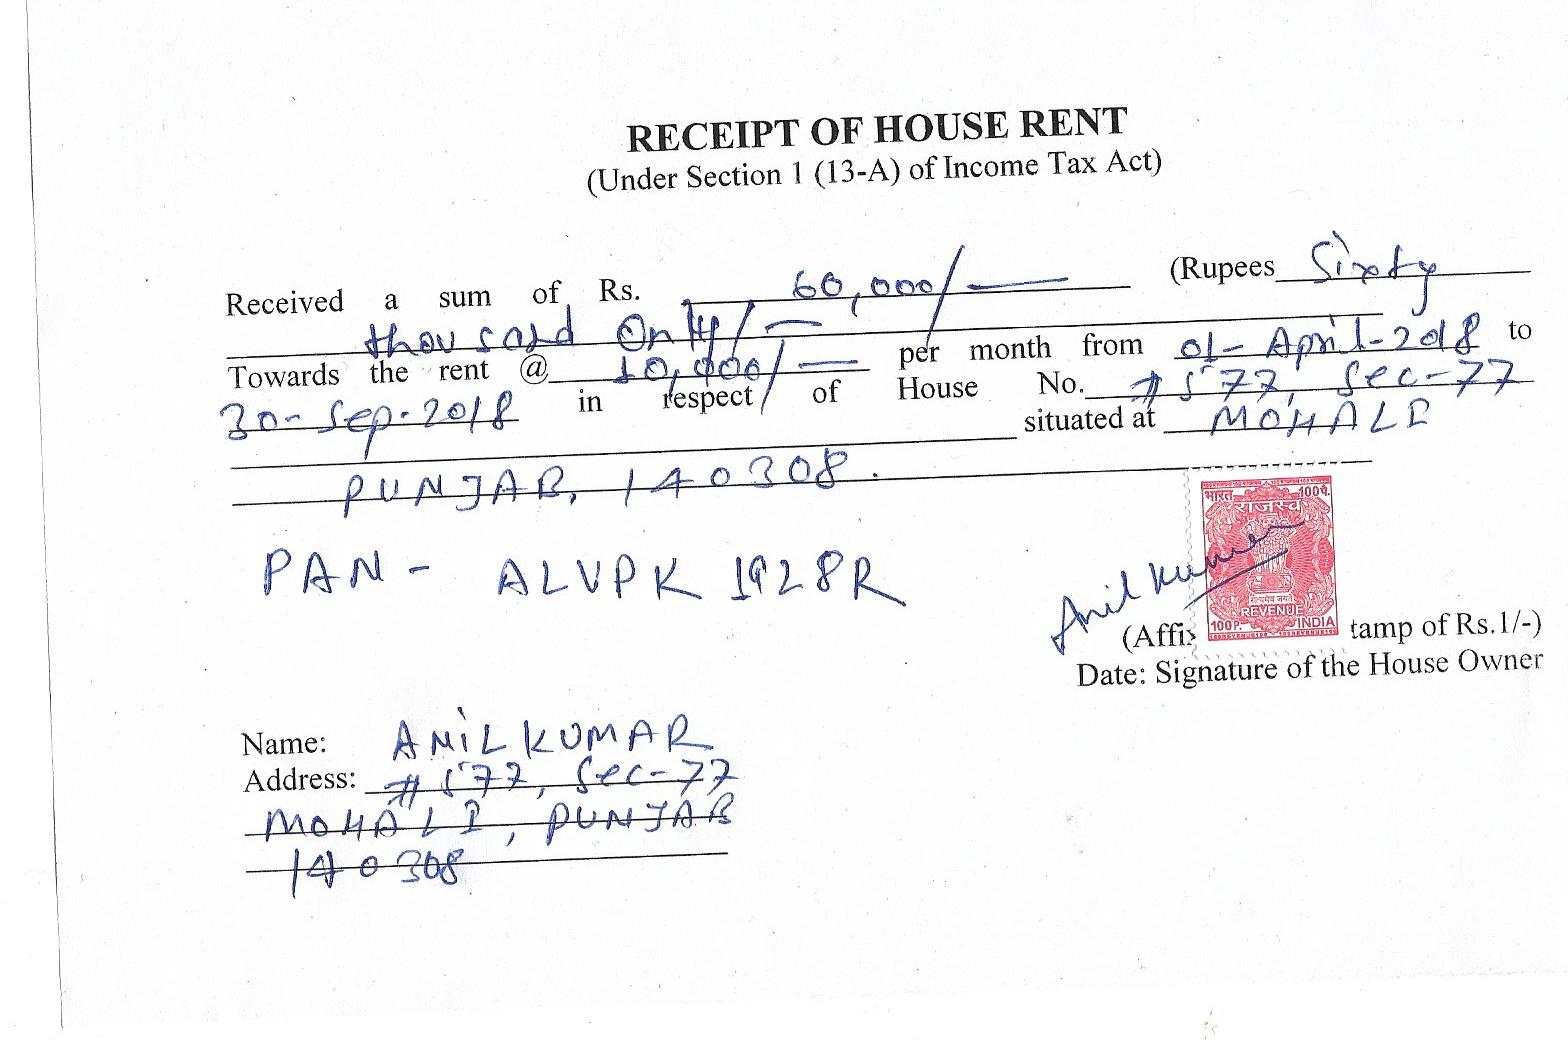 RECEIPT OF HOUSE RENT
(Under Section 1 (13-A) of Income Tax Act)
Received a sum of Rs. 60,000/- (Rupees Sixty
thousand Only/-
Towards the rent @ 10,000/- per month from 01-April-2018 to
30-Sep-2018 in respect of House No. #577, Sec-77
situated at MOHALI
PUNJAB, 140308.
PAN - ALVPK 1928R
भारत 100पै.
राजस्व
सत्यमेव जयते
REVENUE
100P. INDIA
Anil Kumar
(Affix tamp of Rs.1/-)
Date: Signature of the House Owner
Name: ANIL KUMAR
Address: #577, Sec-77
MOHALI, PUNJAB
140308